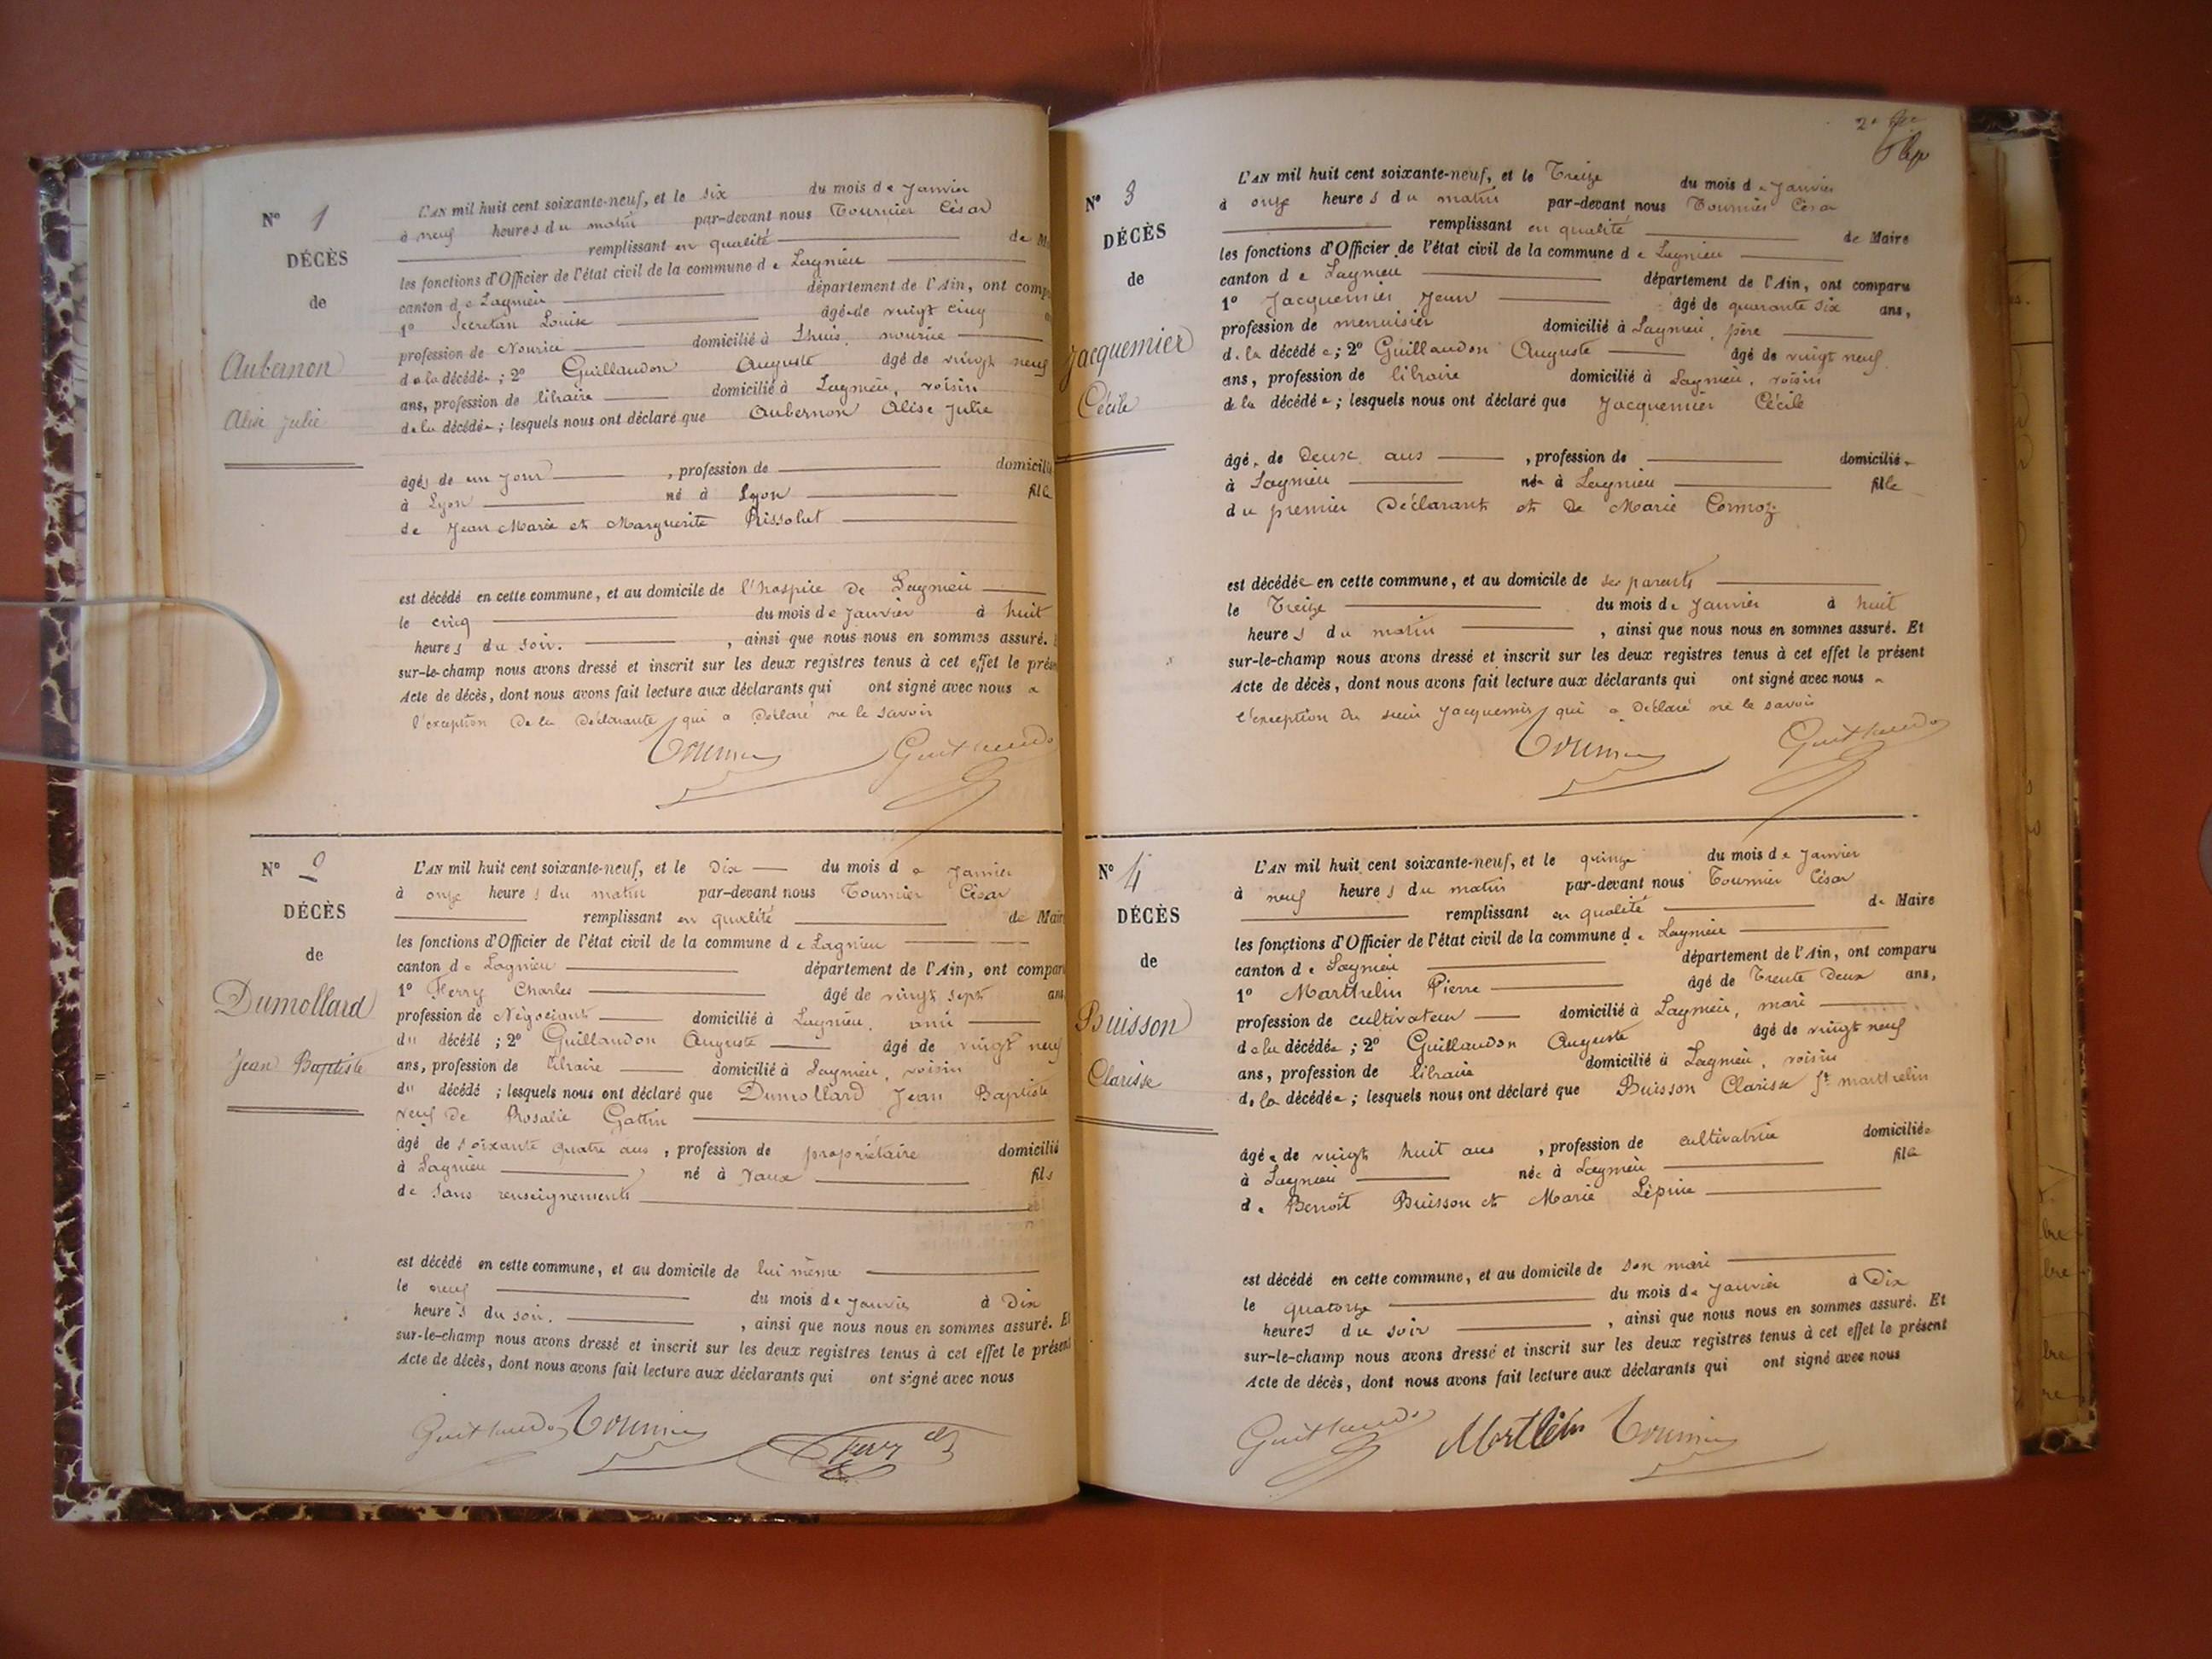 N° 1
DÉCÈS
de
Aubernon
Alise Julie
L'AN mil huit cent soixante-neuf, et le six du mois de Janvier
à neuf heures du matin par-devant nous Tournier César
remplissant en qualité de M
les fonctions d'Officier de l'état civil de la commune de Lagnieu
canton de Lagnieu département de l'Ain, ont comp
1° Secretan Louise âgée de vingt cinq
profession de Nourice domicilié à Lhuis, nourice
de la décédée ; 2° Guillaudon Auguste âgé de vingt neuf
ans, profession de libraire domicilié à Lagnieu, voisin
de la décédée ; lesquels nous ont déclaré que Aubernon Alise Julie
âgée de un jour , profession de domicilié
à Lyon né à Lyon fille
de Jean Marie et Marguerite Rissolut
est décédé en cette commune, et au domicile de l'hospice de Lagnieu
le cinq du mois de Janvier à huit
heures du soir. , ainsi que nous nous en sommes assuré.
sur-le-champ nous avons dressé et inscrit sur les deux registres tenus à cet effet le prése
Acte de décès, dont nous avons fait lecture aux déclarants qui ont signé avec nous a
l'exception de la Déclarante qui a Déclaré ne le savoir
N° 2
DÉCÈS
de
Dumollard
Jean Baptiste
L'AN mil huit cent soixante-neuf, et le Dix du mois de Janvier
à onze heures du matin par-devant nous Tournier César
remplissant en qualité de Mair
les fonctions d'Officier de l'état civil de la commune de Lagnieu
canton de Lagnieu département de l'Ain, ont compar
1° Ferry Charles âgé de vingt sept ans
profession de Négociant domicilié à Lagnieu, ami
du décédé ; 2° Guillaudon Auguste âgé de vingt neuf
ans, profession de libraire domicilié à Lagnieu, voisin
du décédé ; lesquels nous ont déclaré que Dumollard Jean Baptiste
veuf de Rosalie Gattin
âgé de soixante quatre ans , profession de propriétaire domicilié
à Lagnieu né à Vaux fils
de sans renseignements
est décédé en cette commune, et au domicile de lui même
le neuf du mois de Janvier à Dix
heures du soir. , ainsi que nous nous en sommes assuré. E
sur-le-champ nous avons dressé et inscrit sur les deux registres tenus à cet effet le présent
Acte de décès, dont nous avons fait lecture aux déclarants qui ont signé avec nous
N° 3
DÉCÈS
de
Jacquemier
Cécile
L'AN mil huit cent soixante-neuf, et le Treize du mois de Janvier
à onze heures du matin par-devant nous Tournier César
remplissant en qualité de Maire
les fonctions d'Officier de l'état civil de la commune de Lagnieu
canton de Lagnieu département de l'Ain, ont comparu
1° Jacquemier Jean âgé de quarante six ans,
profession de menuisier domicilié à Lagnieu, père
de la décédée ; 2° Guillaudon Auguste âgé de vingt neuf
ans, profession de libraire domicilié à Lagnieu, voisin
de la décédée ; lesquels nous ont déclaré que Jacquemier Cécile
âgée de Deux ans , profession de domiciliée
à Lagnieu née à Lagnieu fille
du premier Déclarant et de Marie Cormoz
est décédée en cette commune, et au domicile de ses parents
le Treize du mois de Janvier à huit
heures du matin , ainsi que nous nous en sommes assuré. Et
sur-le-champ nous avons dressé et inscrit sur les deux registres tenus à cet effet le présent
Acte de décès, dont nous avons fait lecture aux déclarants qui ont signé avec nous a
l'exception du sieur Jacquemier qui a Déclaré ne le savoir
N° 4
DÉCÈS
de
Buisson
Clarisse
L'AN mil huit cent soixante-neuf, et le quinze du mois de Janvier
à neuf heures du matin par-devant nous Tournier César
remplissant en qualité de Maire
les fonctions d'Officier de l'état civil de la commune de Lagnieu
canton de Lagnieu département de l'Ain, ont comparu
1° Marthelin Pierre âgé de Trente Deux ans,
profession de cultivateur domicilié à Lagnieu, mari
de la décédée ; 2° Guillaudon Auguste âgé de vingt neuf
ans, profession de libraire domicilié à Lagnieu, voisin
de la décédée ; lesquels nous ont déclaré que Buisson Clarisse ft marthelin
âgée de vingt huit ans , profession de cultivatrice domiciliée
à Lagnieu née à Lagnieu fille
de Benoît Buisson et Marie Lépine
est décédé en cette commune, et au domicile de son mari
le quatorze du mois de Janvier à Dix
heures du soir , ainsi que nous nous en sommes assuré. Et
sur-le-champ nous avons dressé et inscrit sur les deux registres tenus à cet effet le présent
Acte de décès, dont nous avons fait lecture aux déclarants qui ont signé avec nous
Marthelin